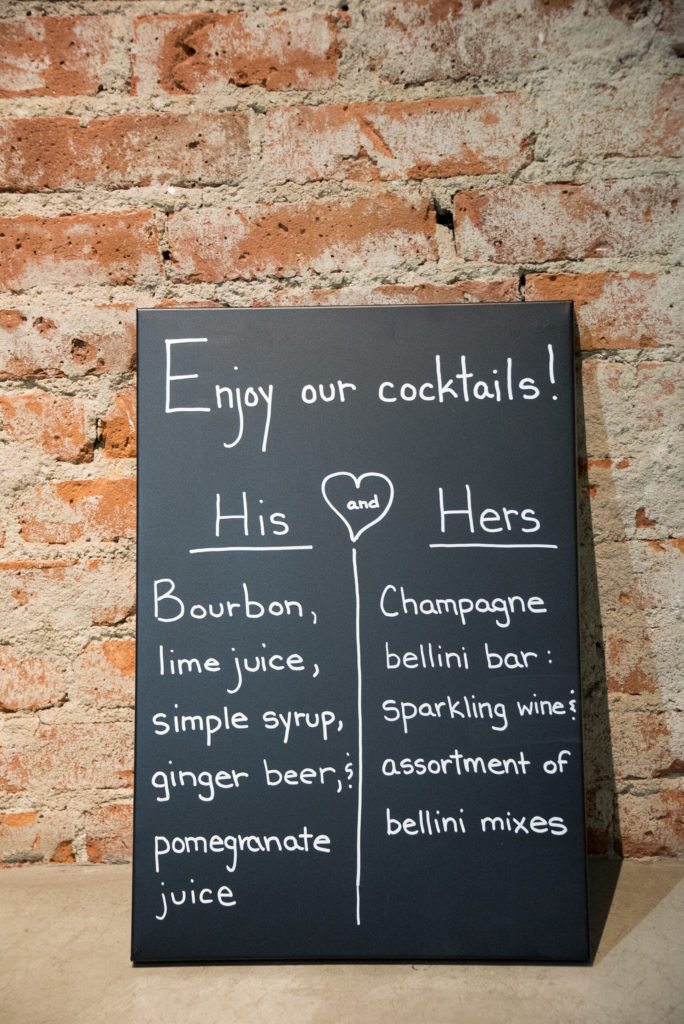 Enjoy our cocktails!
His and Hers
Bourbon,
lime juice,
simple syrup,
ginger beer, &
pomegranate
juice
Champagne
bellini bar:
sparkling wine &
assortment of
bellini mixes